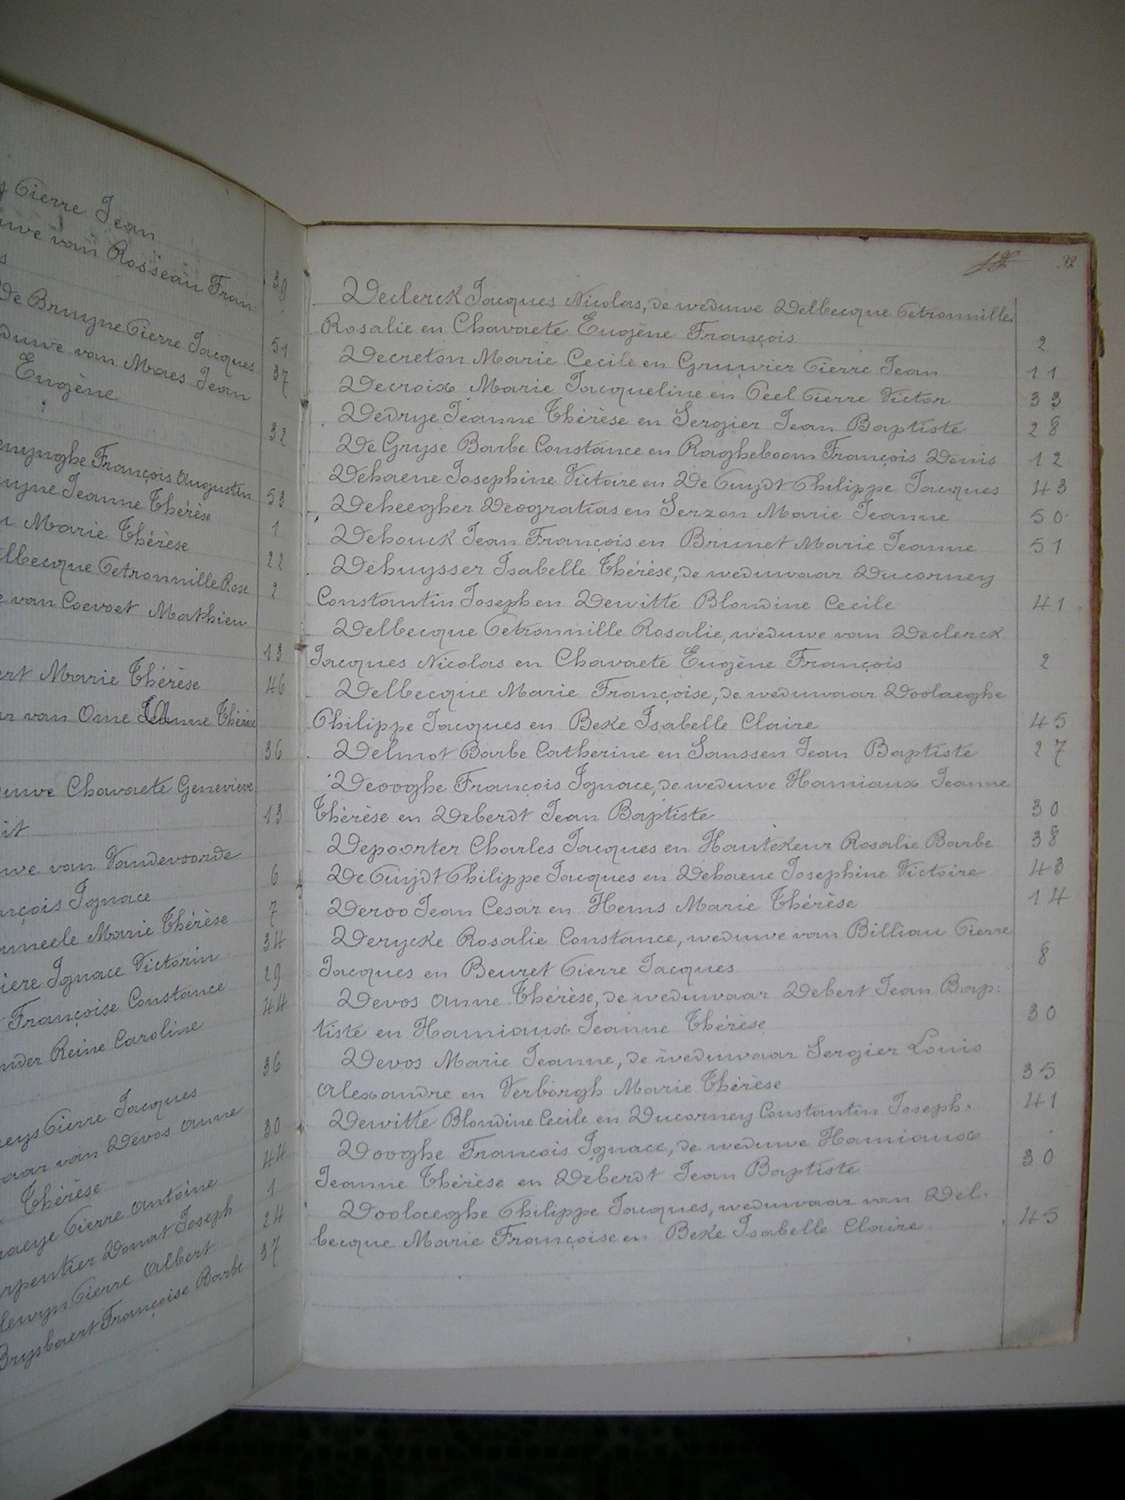 Pierre Jean
van Rosseau Fran
39
De Bruyne Pierre Jacques
51
duwe van Maes Jean
37
Eugène
32
François Augustin
53
Jeanne Thérèse
1
Marie Thérèse
22
elbecque Petronnille Rose
2
van Coevoet Mathieu
13
Marie Thérèse
46
van Ome Jeanne Thérèse
36
Chavaete Genevieve
13
van Vandevoorde
6
ançois Ignace
7
Marie Thérèse
34
iere Ignace Victorin
29
Françoise Constance
44
Reine Caroline
36
Pierre Jacques
30
van Devos Anne
44
Thérèse
Pierre Antoine
1
arpentier Donat Joseph
24
Pierre Albert
37
Brysbaert Françoise Barbe
32
Declerck Jacques Nicolas, de weduwe Delbecque Petronnille
Rosalie en Chavaete Eugène François 2
Decreton Marie Cecile en Grunier Pierre Jean 11
Decroix Marie Jacqueline en Peel Pierre Victor 33
Dedrye Jeanne Thérèse en Sergier Jean Baptiste 28
De Gryse Barbe Constance en Ragheboom François Denis 12
Dehaene Josephine Victoire en De Cuydt Philippe Jacques 43
Deheegher Deogratias en Serzon Marie Jeanne 50
Dehouck Jean François en Brunet Marie Jeanne 51
Dehuysser Isabelle Thérèse, de weduwaar Ducorney
Constantin Joseph en Dewitte Blondine Cecile 41
Delbecque Petronnille Rosalie, weduwe van Declerck
Jacques Nicolas en Chavaete Eugène François 2
Delbecque Marie Françoise, de weduwaar Doolaeghe
Philippe Jacques en Beke Isabelle Claire 45
Delmot Barbe Catherine en Sanssen Jean Baptiste 27
Deooghe François Ignace, de weduwe Hamiaux Jeanne
Thérèse en Deberdt Jean Baptiste 30
Depoorter Charles Jacques en Hautekeur Rosalie Barbe 38
De Cuydt Philippe Jacques en Dehaene Josephine Victoire 43
Deroo Jean Cesar en Hems Marie Thérèse 14
Derycke Rosalie Constance, weduwe van Billiau Pierre
Jacques en Beuret Pierre Jacques 8
Devos Anne Thérèse, de weduwaar Debert Jean Bap:
tiste en Hamiaux Jeanne Thérèse 30
Devos Marie Jeanne, de weduwaar Sergier Louis
Alexandre en Verborgh Marie Thérèse 35
Dewitte Blondine Cecile en Ducorney Constantin Joseph. 41
Dooghe François Ignace, de weduwe Hamiaux
Jeanne Thérèse en Deberdt Jean Baptiste 30
Doolaeghe Philippe Jacques, weduwaar van Del.
becque Marie Françoise en Beke Isabelle Claire 45